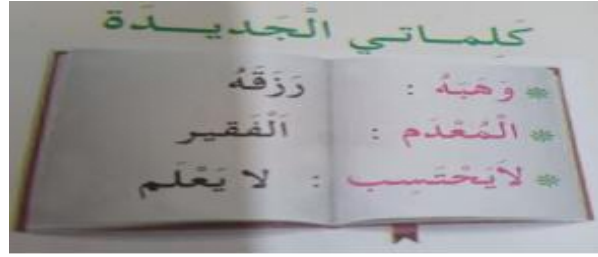 كَلِمـــاتـي الْجَديـــــدَة
* وَهَبَهُ : رَزَقَهُ
* الْمُعْدَم : اَلْفَقير
* لاَيَحْتَسِب : لا يَعْلَم